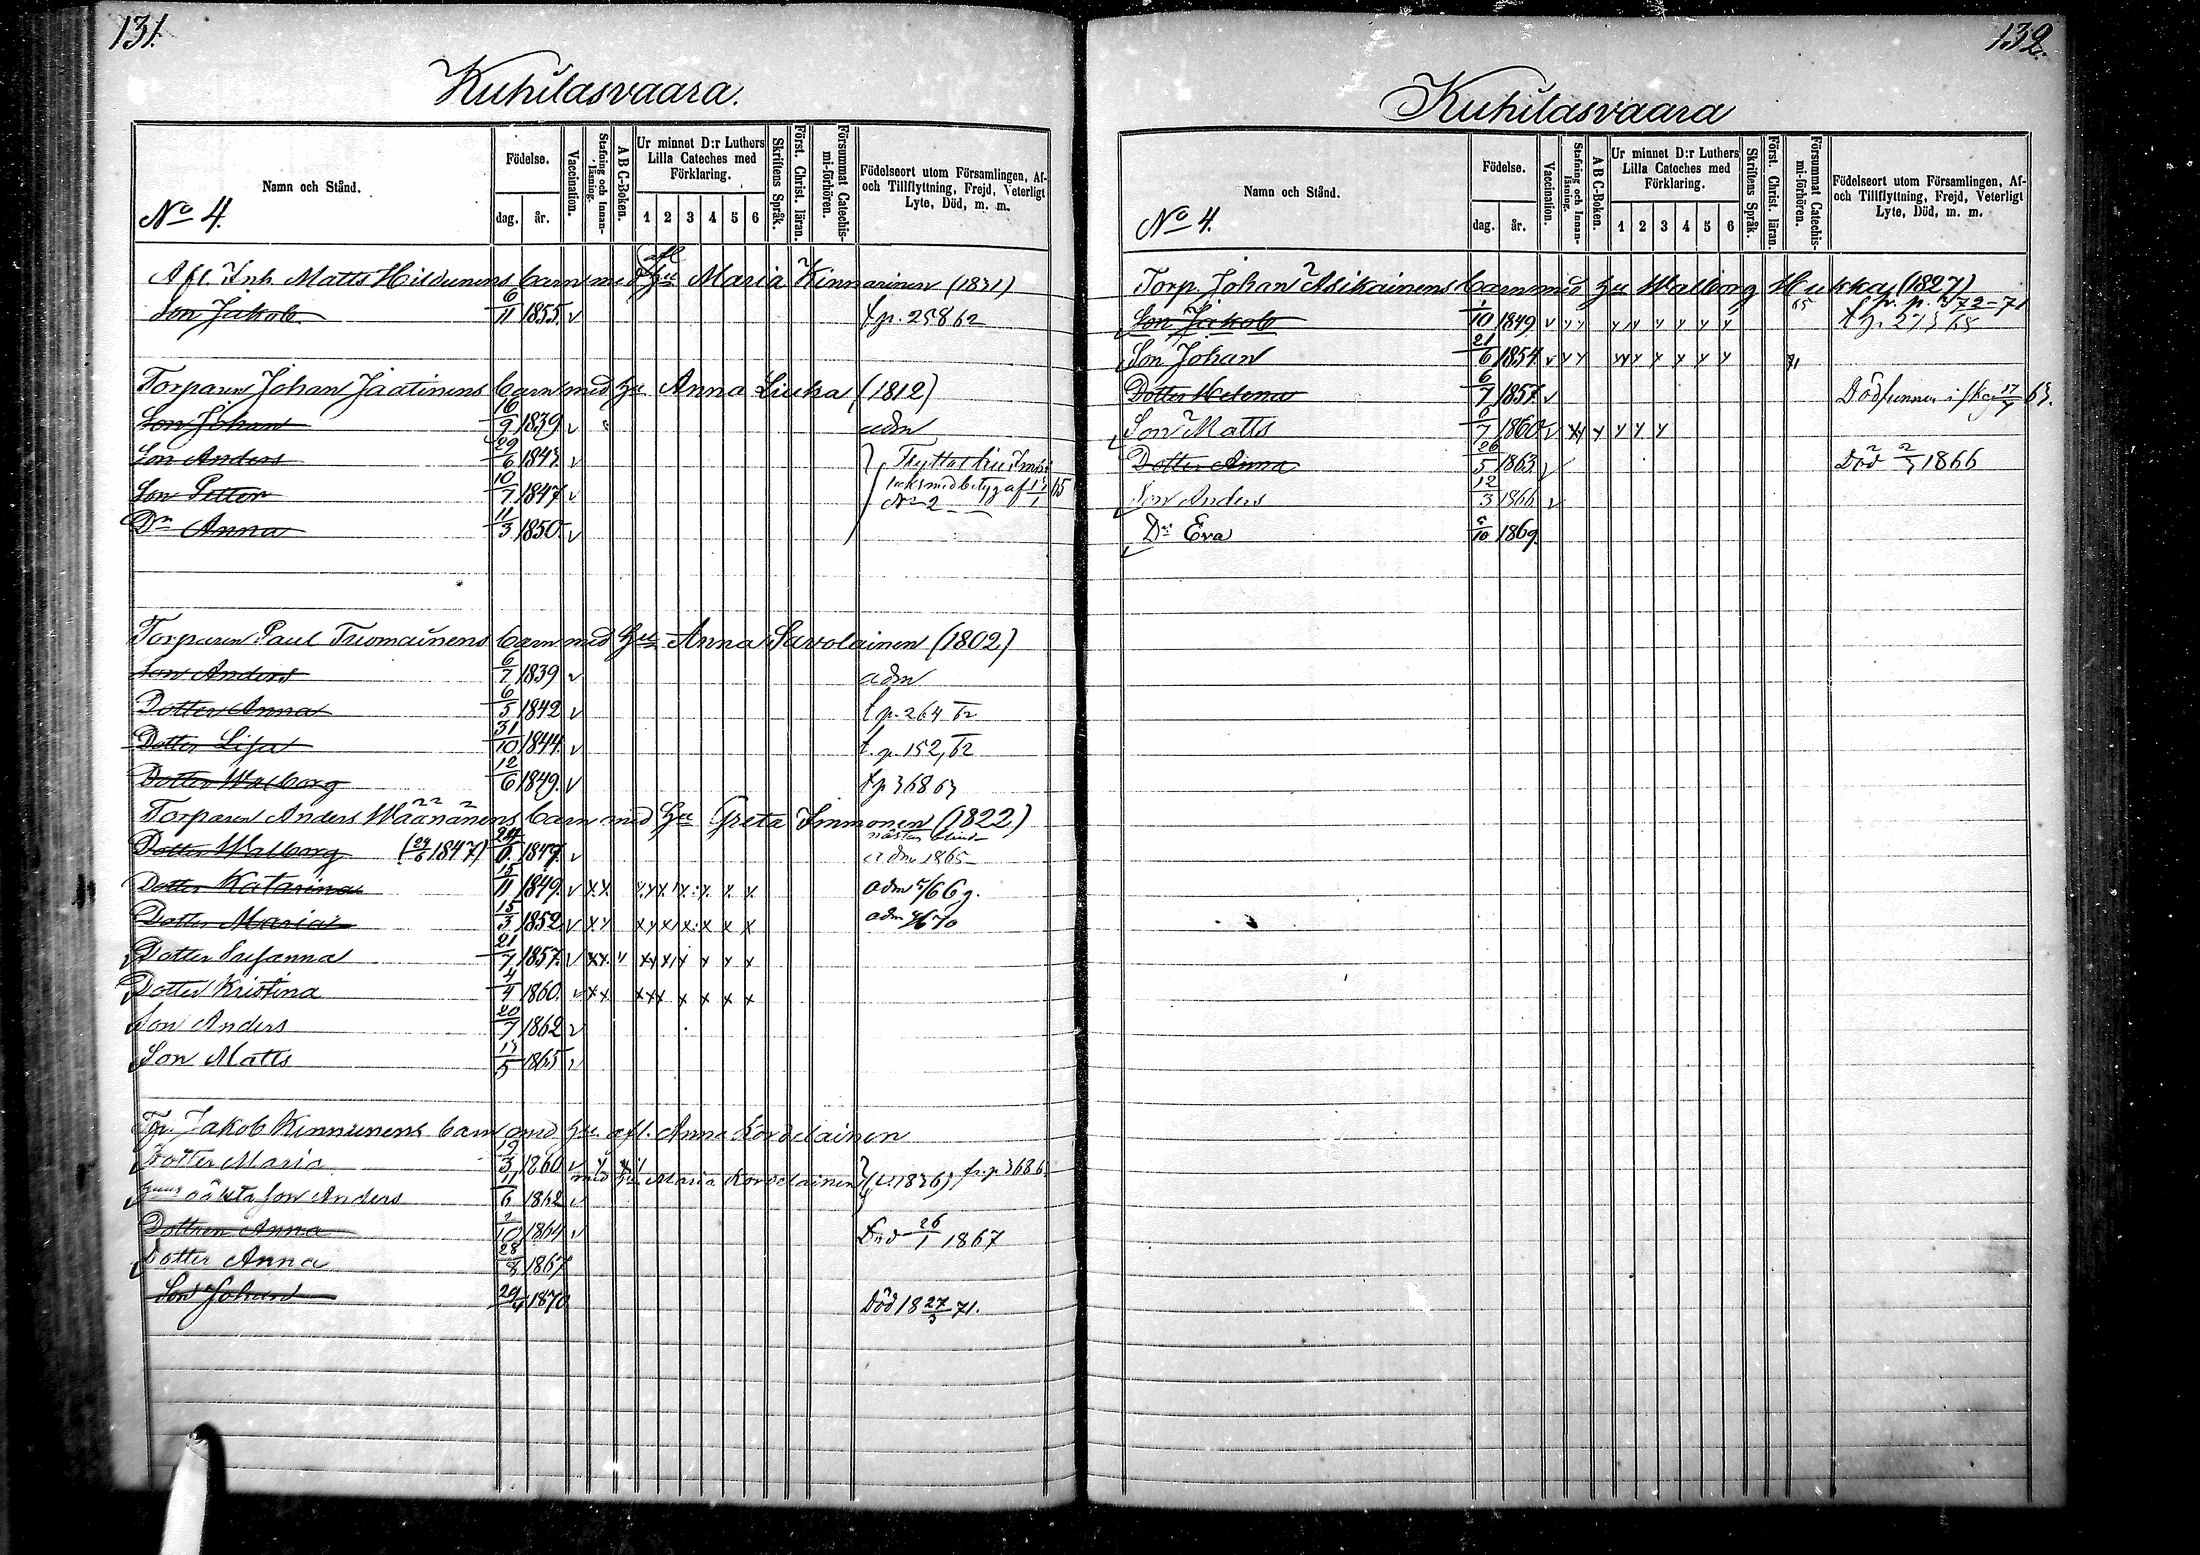 131.
Kuhilasvaara.
Namn och Stånd.
No 4.
Födelse.
dag. år.
Vaccination.
Stafning och Innanläsning.
A B C-Boken.
Ur minnet D:r Luthers Lilla Cateches med Förklaring.
1 2 3 4 5 6
Skriftens Språk.
Först. Christ. läran.
Försummat Catechismi-förhören.
Födelseort utom Församlingen, Af- och Tillflyttning, Frejd, Veterligt Lyte, Död, m. m.
afl
Afl. Inh. Matts Hildunens barn med Hu Maria Kinnarinen (1831)
Son Jakob 6/11 1855 v t p. 258 62
Torparen Johan Jäätinens barn med Hu Anna Liuka (1812)
Son Johan 16/9 1839 v adm
Son Anders 29/6 1843 v
Son Petter 10/7 1847 v
No 2
Dr Anna 11/3 1850 v
Torparen Paul Tuomainens barn med Hu Anna Savolainen (1802)
Son Anders 6/7 1839 v adm
Dotter Anna 6/5 1842 v t p. 264 62
Dotter Lisa 31/10 1844 v t. p. 152, 62
Dotter Walborg 12/6 1849 v t p 368 63
Torparen Anders Wäänänens barn med Hu Greta Immonen (1822)
Dotter Walborg (24/6 1847) 24/6 1847 v nästan blind adm 1865
Dotter Katarina 15/11 1849 v x x
Dotter Maria 15/3 1852 v x x
Dotter Susanna 21/7 1857 v x x
Dotter Kristina 4/4 1860 v x x
Son Anders 20/7 1862 v
Son Matts 13/5 1865 v
Tp. Jakob Kinnunens barn med Hu. afl. Anna Kordelainen
Dotter Maria 19/3 1860 v
med Hu. Maria Kordelainen (1836) fr. p 368 6
Son Anders 11/6 1862 v
Dottren Anna 2/10 1864 v Död 26/1 1867
Dotter Anna 28/8 1867
Son Johan 29/4 1870 Död 18 27/3 71.
132.
Kuhilasvaara
Namn och Stånd.
No 4.
Födelse.
dag. år.
Vaccination.
Stafning och Innanläsning.
A B C-Boken.
Ur minnet D:r Luthers Lilla Cateches med Förklaring.
1 2 3 4 5 6
Skriftens Språk.
Först. Christ. läran.
Försummat Catechismi-förhören.
Födelseort utom Församlingen, Af- och Tillflyttning, Frejd, Veterligt Lyte, Död, m. m.
Torp. Johan Asikainens barn med Hu Walborg Hukka (1827)
Son Jakob 1/10 1849 v 65 t p. 273 68
Son Johan 21/6 1854 v 71
Dotter Helena 6/7 1857 v Död 17/7 63.
Son Matts 6/7 1860 v
Dotter Anna 26/5 1863 v Död 2/3 1866
Son Anders 12/3 1866 v
Dr Eva 5/10 1869